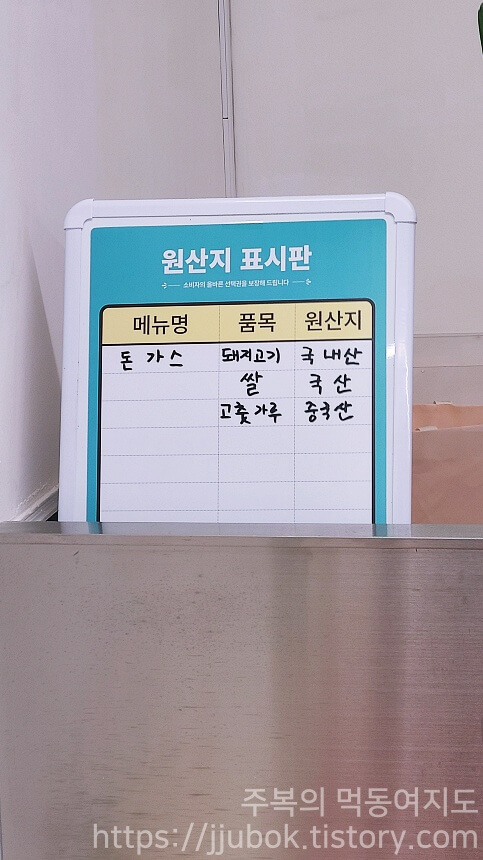 원산지 표시판
소비자의 올바른 선택권을 보장해 드립니다
메뉴명 품목 원산지
돈 가 스 돼지고기 국 내 산
쌀 국 산
고춧가루 중국산
주복의 먹동여지도
https://jjubok.tistory.com